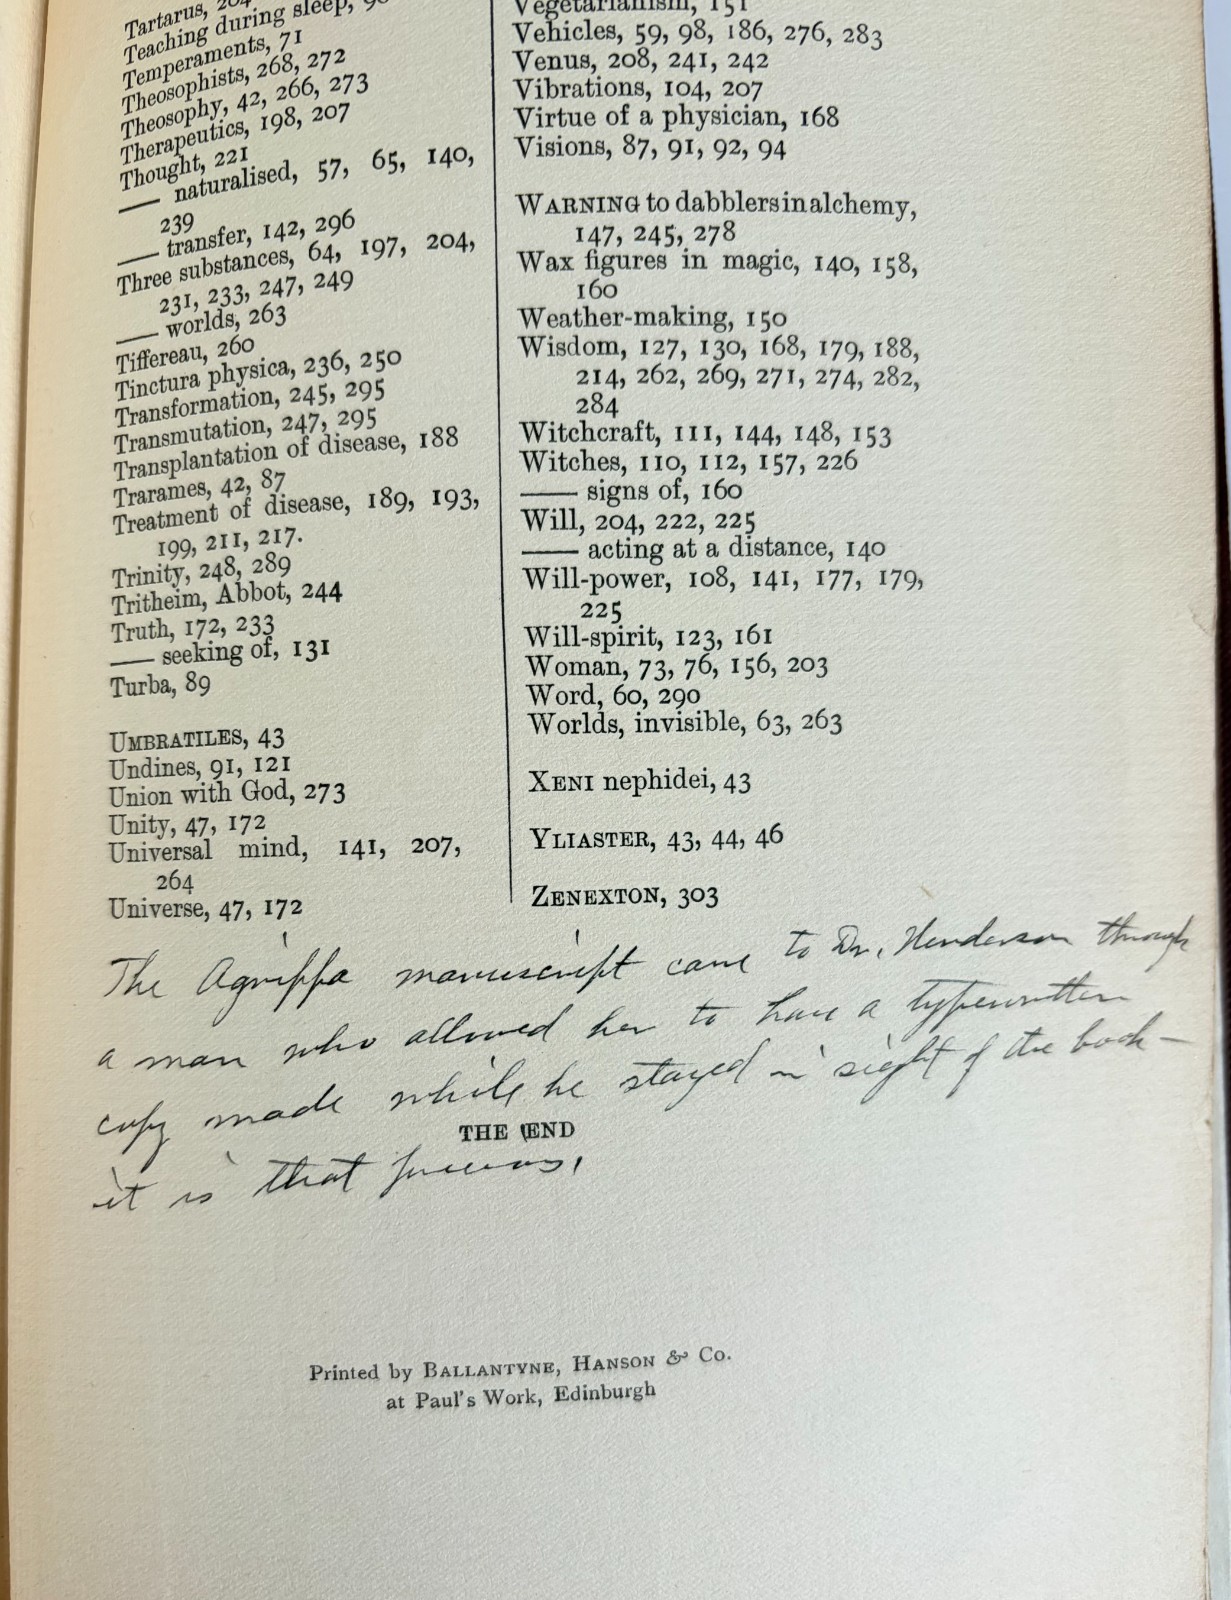 Tartarus, 204
Teaching during sleep,
Temperaments, 71
Theosophists, 268, 272
Theosophy, 42, 266, 273
Therapeutics, 198, 207
Thought, 221
—— naturalised, 57, 65, 140,
239
—— transfer, 142, 296
Three substances, 64, 197, 204,
231, 233, 247, 249
—— worlds, 263
Tiffereau, 260
Tinctura physica, 236, 250
Transformation, 245, 295
Transmutation, 247, 295
Transplantation of disease, 188
Trarames, 42, 87
Treatment of disease, 189, 193,
199, 211, 217.
Trinity, 248, 289
Tritheim, Abbot, 244
Truth, 172, 233
—— seeking of, 131
Turba, 89
UMBRATILES, 43
Undines, 91, 121
Union with God, 273
Unity, 47, 172
Universal mind, 141, 207,
264
Universe, 47, 172
Vegetarianism, 151
Vehicles, 59, 98, 186, 276, 283
Venus, 208, 241, 242
Vibrations, 104, 207
Virtue of a physician, 168
Visions, 87, 91, 92, 94
WARNING to dabblers in alchemy,
147, 245, 278
Wax figures in magic, 140, 158,
160
Weather-making, 150
Wisdom, 127, 130, 168, 179, 188,
214, 262, 269, 271, 274, 282,
284
Witchcraft, 111, 144, 148, 153
Witches, 110, 112, 157, 226
—— signs of, 160
Will, 204, 222, 225
—— acting at a distance, 140
Will-power, 108, 141, 177, 179,
225
Will-spirit, 123, 161
Woman, 73, 76, 156, 203
Word, 60, 290
Worlds, invisible, 63, 263
XENI nephidei, 43
YLIASTER, 43, 44, 46
ZENEXTON, 303
The Agrippa manuscript came to Dr. Henderson through
a man who allowed her to have a typewritten
copy made while he stayed in sight of the book —
THE END
it is that
Printed by BALLANTYNE, HANSON & Co.
at Paul's Work, Edinburgh